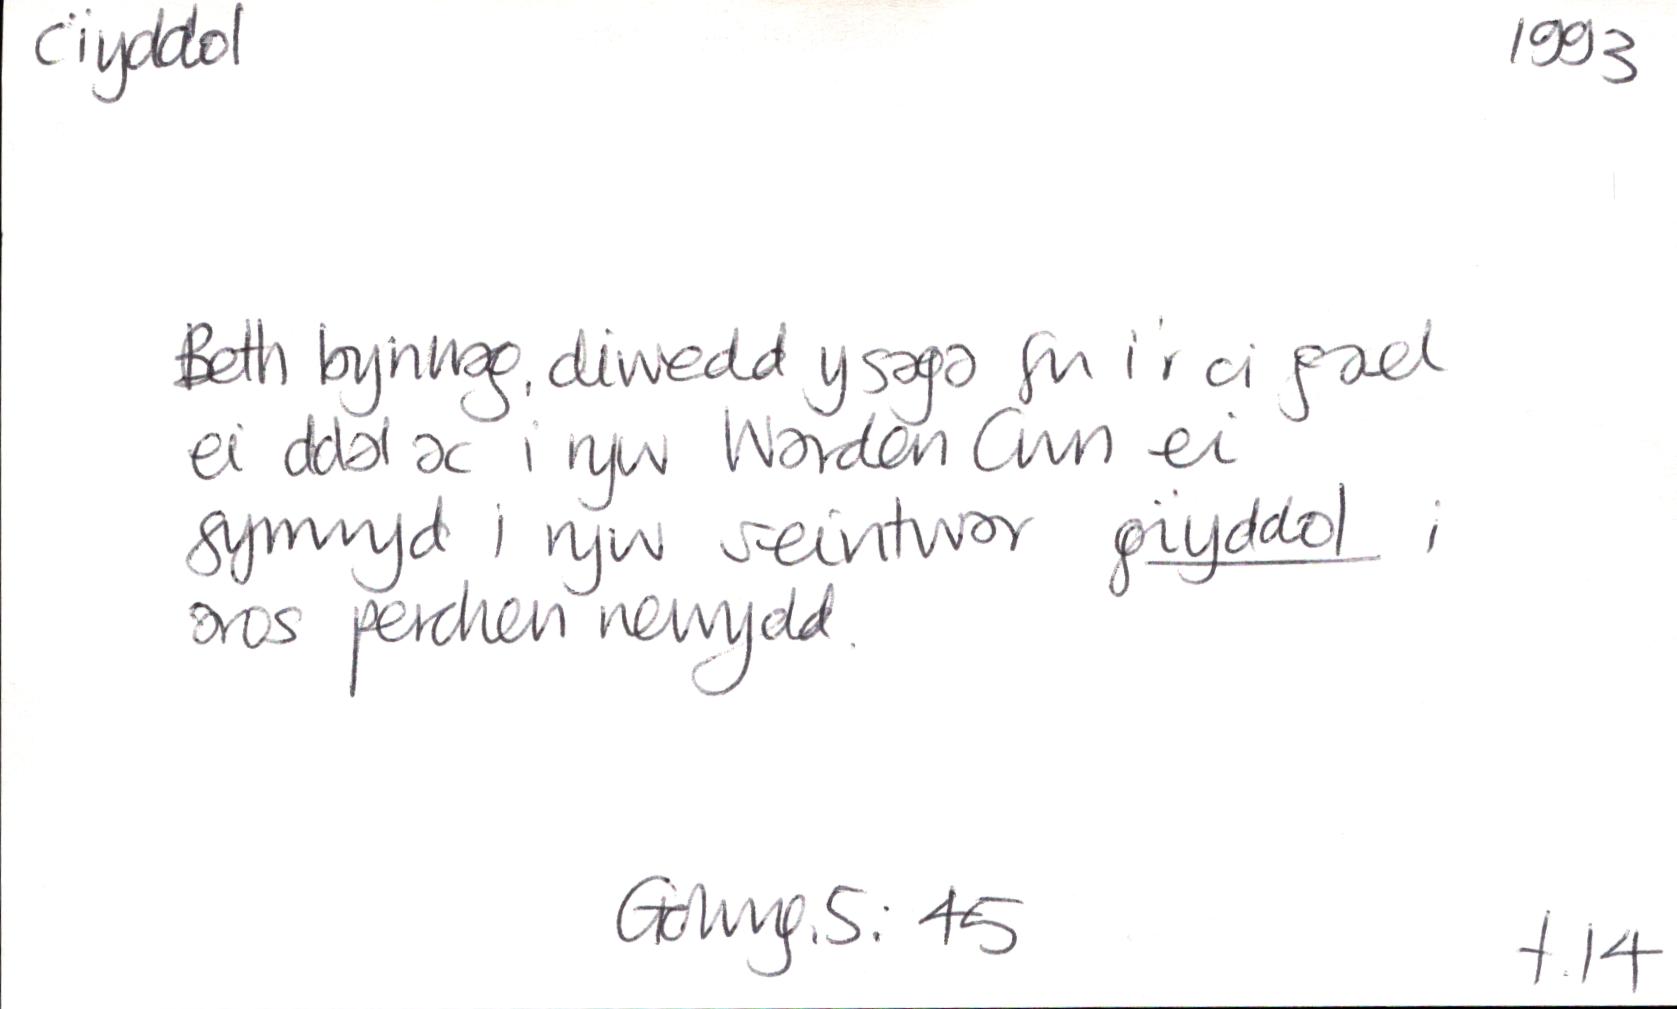 cïyddol
1993
Beth bynnag, diwedd y saga fu i'r ci gael
ei ddal ac i ryw Warden Cŵn ei
symud i ryw seintwar gïyddol i
aros perchen newydd.
Golwg. 5: 45
t. 14